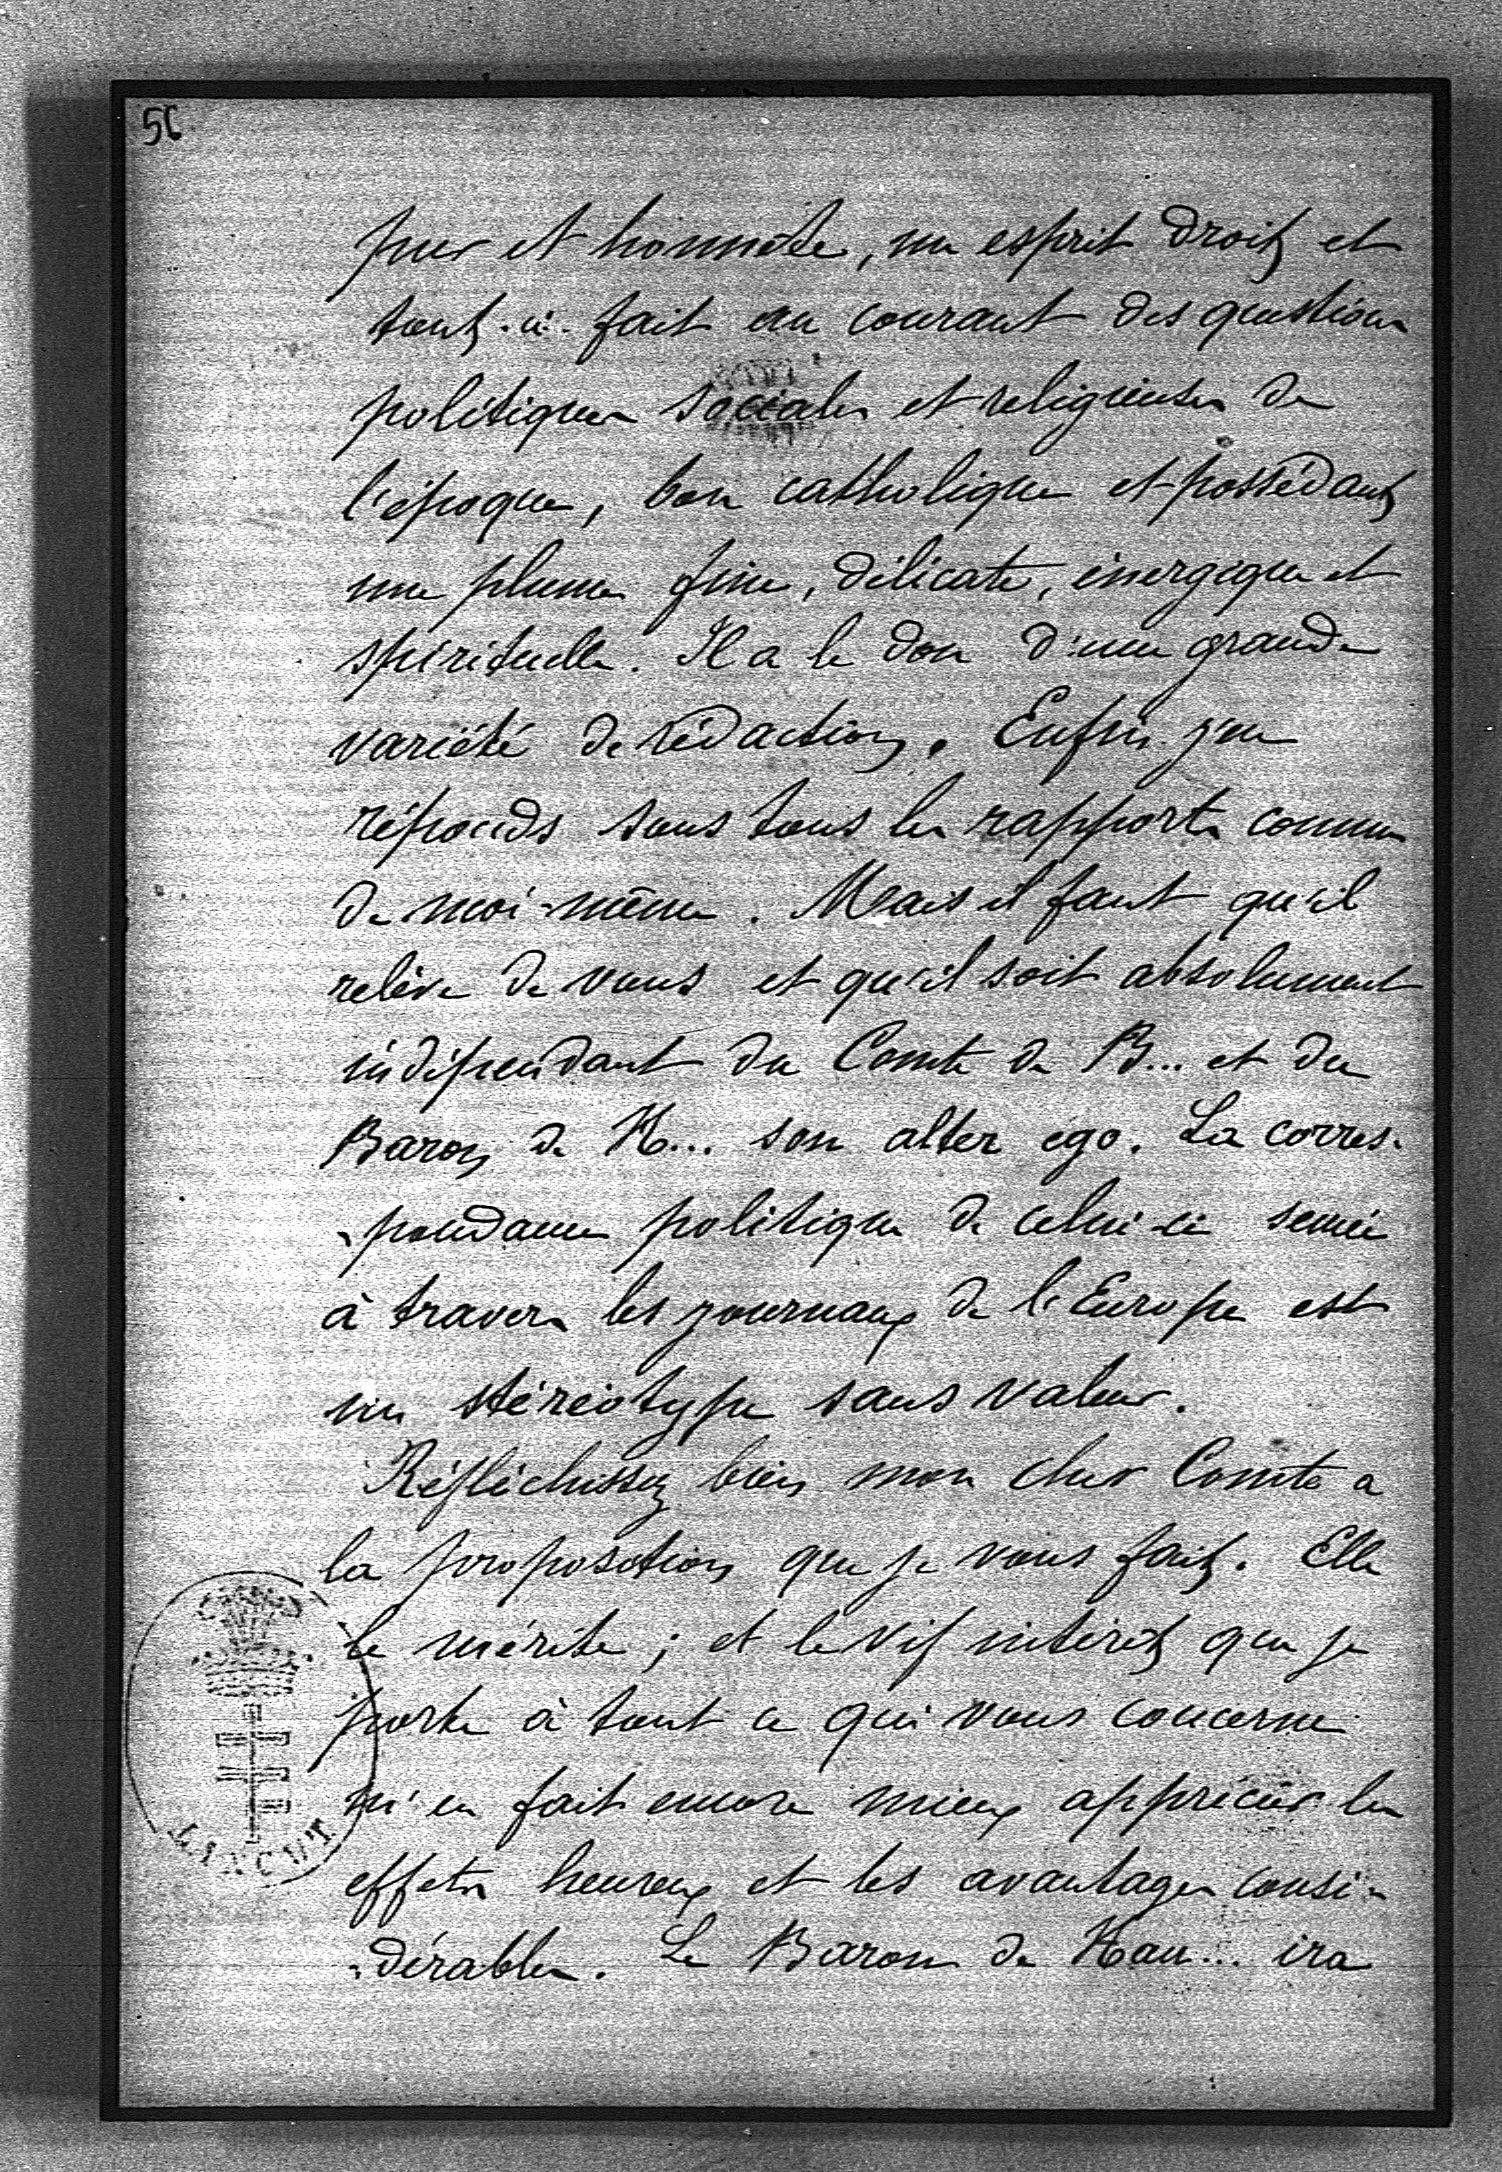 56
pur et honnête, un esprit droit et
tout-à-fait au courant des questions
politiques sociales et religieuses de
l'époque, bon catholique et possédant
une plume fine, délicate, énergique et
spirituelle. Il a le don d'une grande
variété de rédaction. Enfin j'en
réponds sous tous les rapports comme
de moi-même. Mais il faut qu'il
relève de vous et qu'il soit absolument
indépendant du Comte de B... et du
Baron de K... son alter ego. La corres-
-pondance politique de celui-ci semée
à travers les journaux de l'Europe est
un stéréotype sans valeur.
Réfléchissez bien mon cher Comte a
la proposition que je vous fait. Elle
le mérite; et le vif intérêt que je
porte à tout ce qui vous concerne
m'en fait encore mieux apprécier les
effets heureux et les avantages consi-
-dérables. Le Baron de Kau... ira
ŁAŃCUT